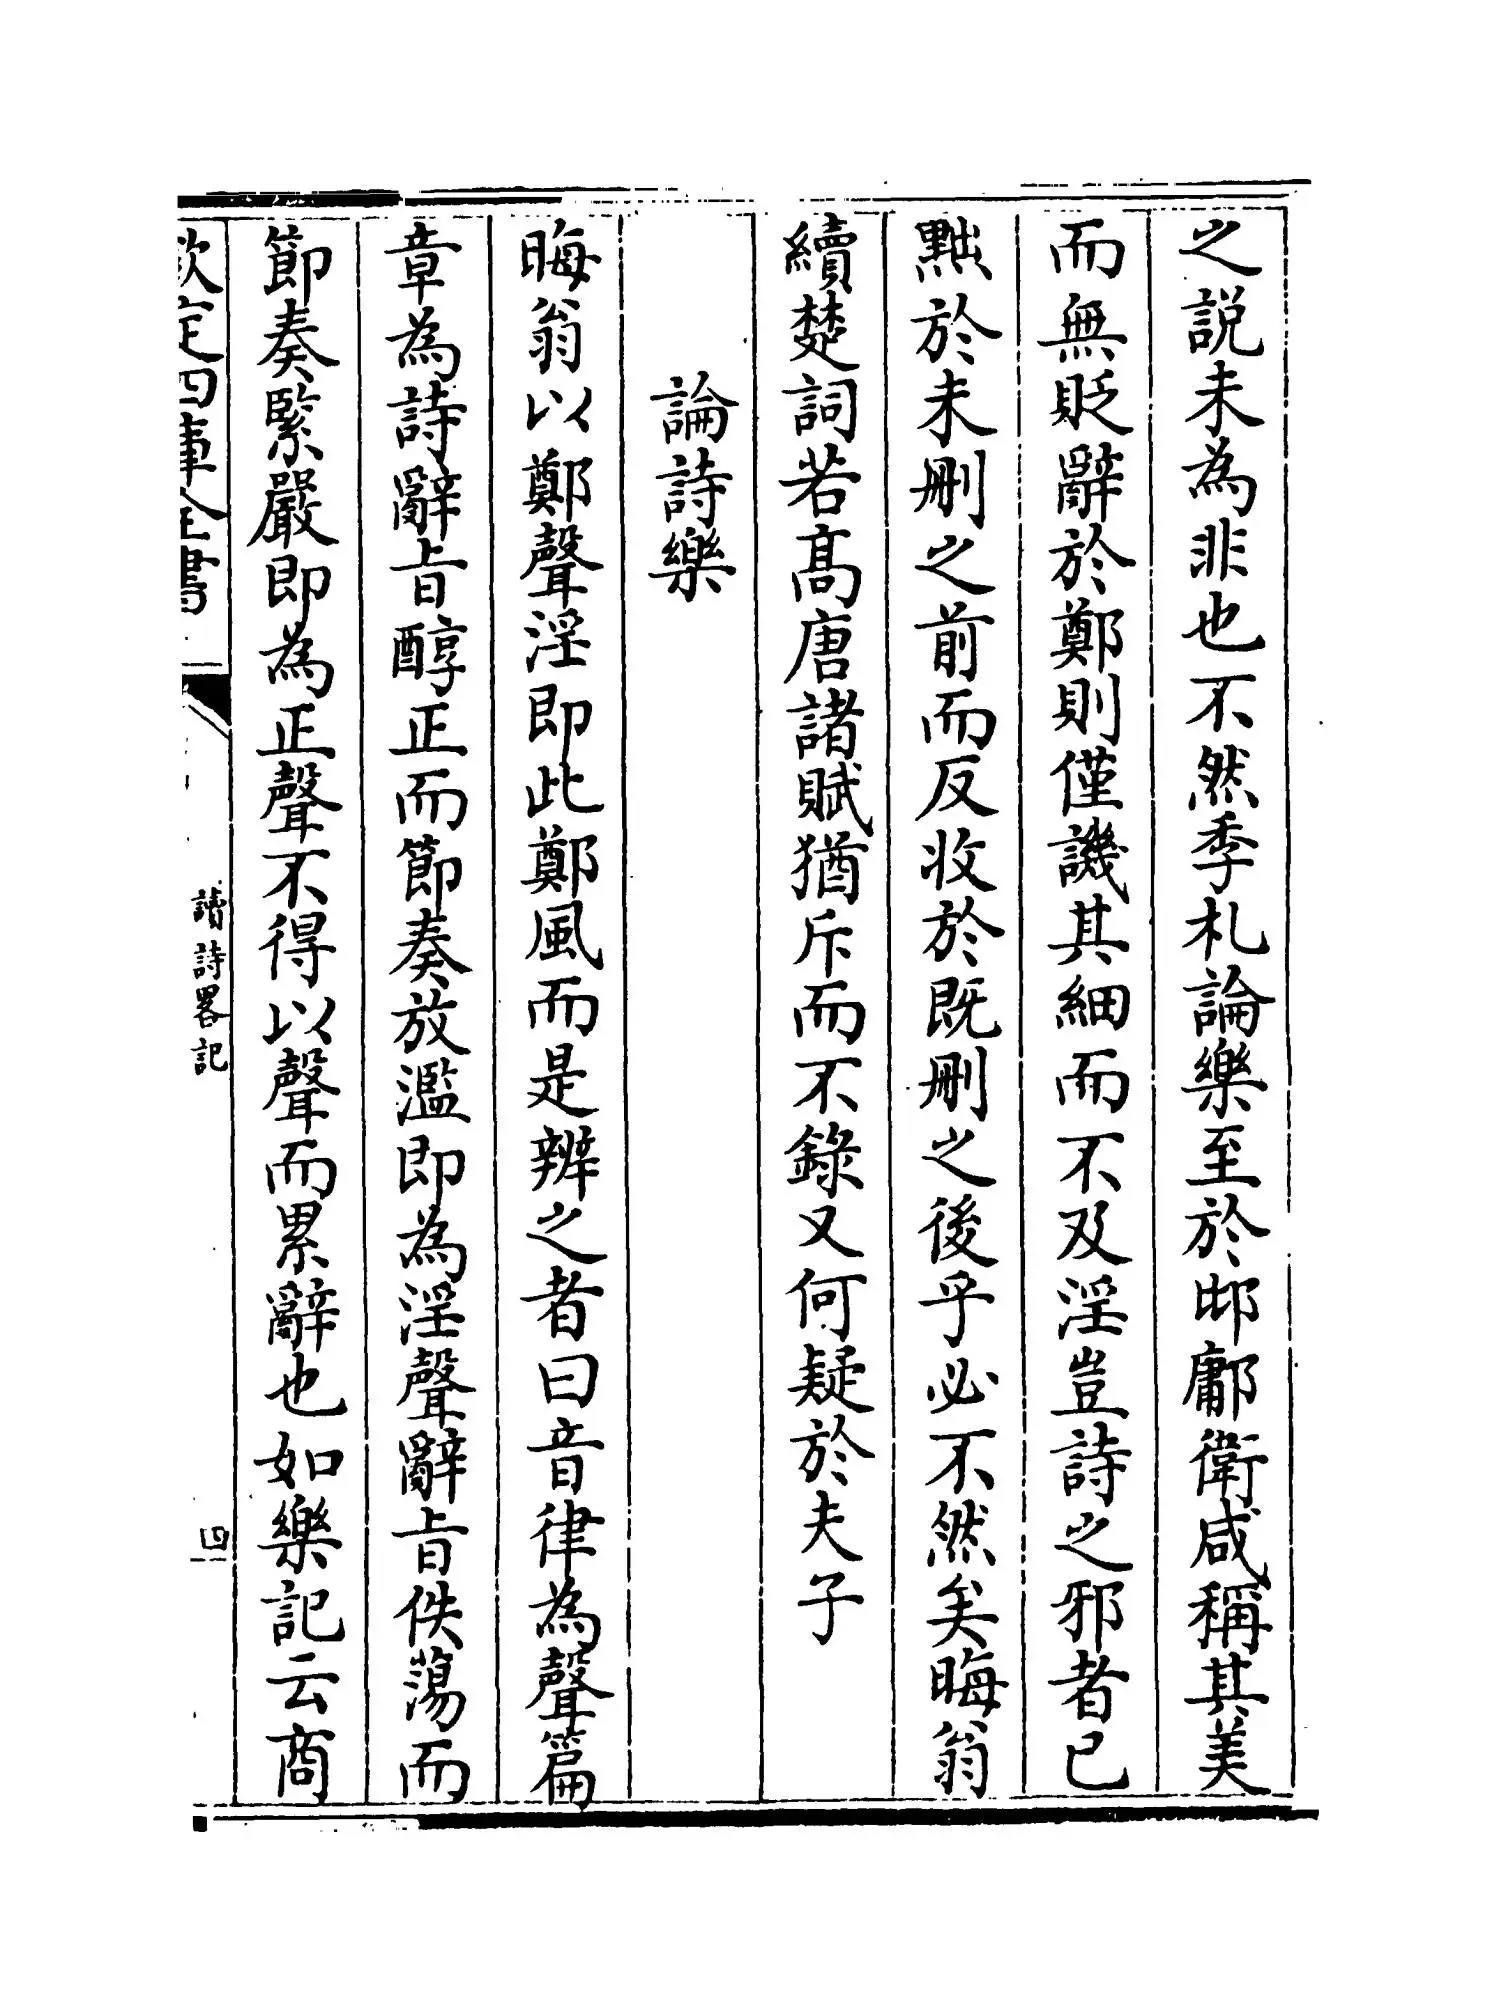 之説未為非也不然季札論樂至於邶鄘衛咸稱其美
而無貶辭於鄭則僅譏其細而不及淫豈詩之邪者已
黜於未刪之前而反收於既刪之後乎必不然矣晦翁
續楚詞若髙唐諸賦猶斥而不錄又何疑於夫子
論詩樂
晦翁以鄭聲淫即此鄭風而是辨之者曰音律為聲篇
章為詩辭旨醇正而節奏放濫即為淫聲辭旨佚蕩而
節奏緊嚴即為正聲不得以聲而累辭也如樂記云商
欽定四庫全書
讀詩畧記
四